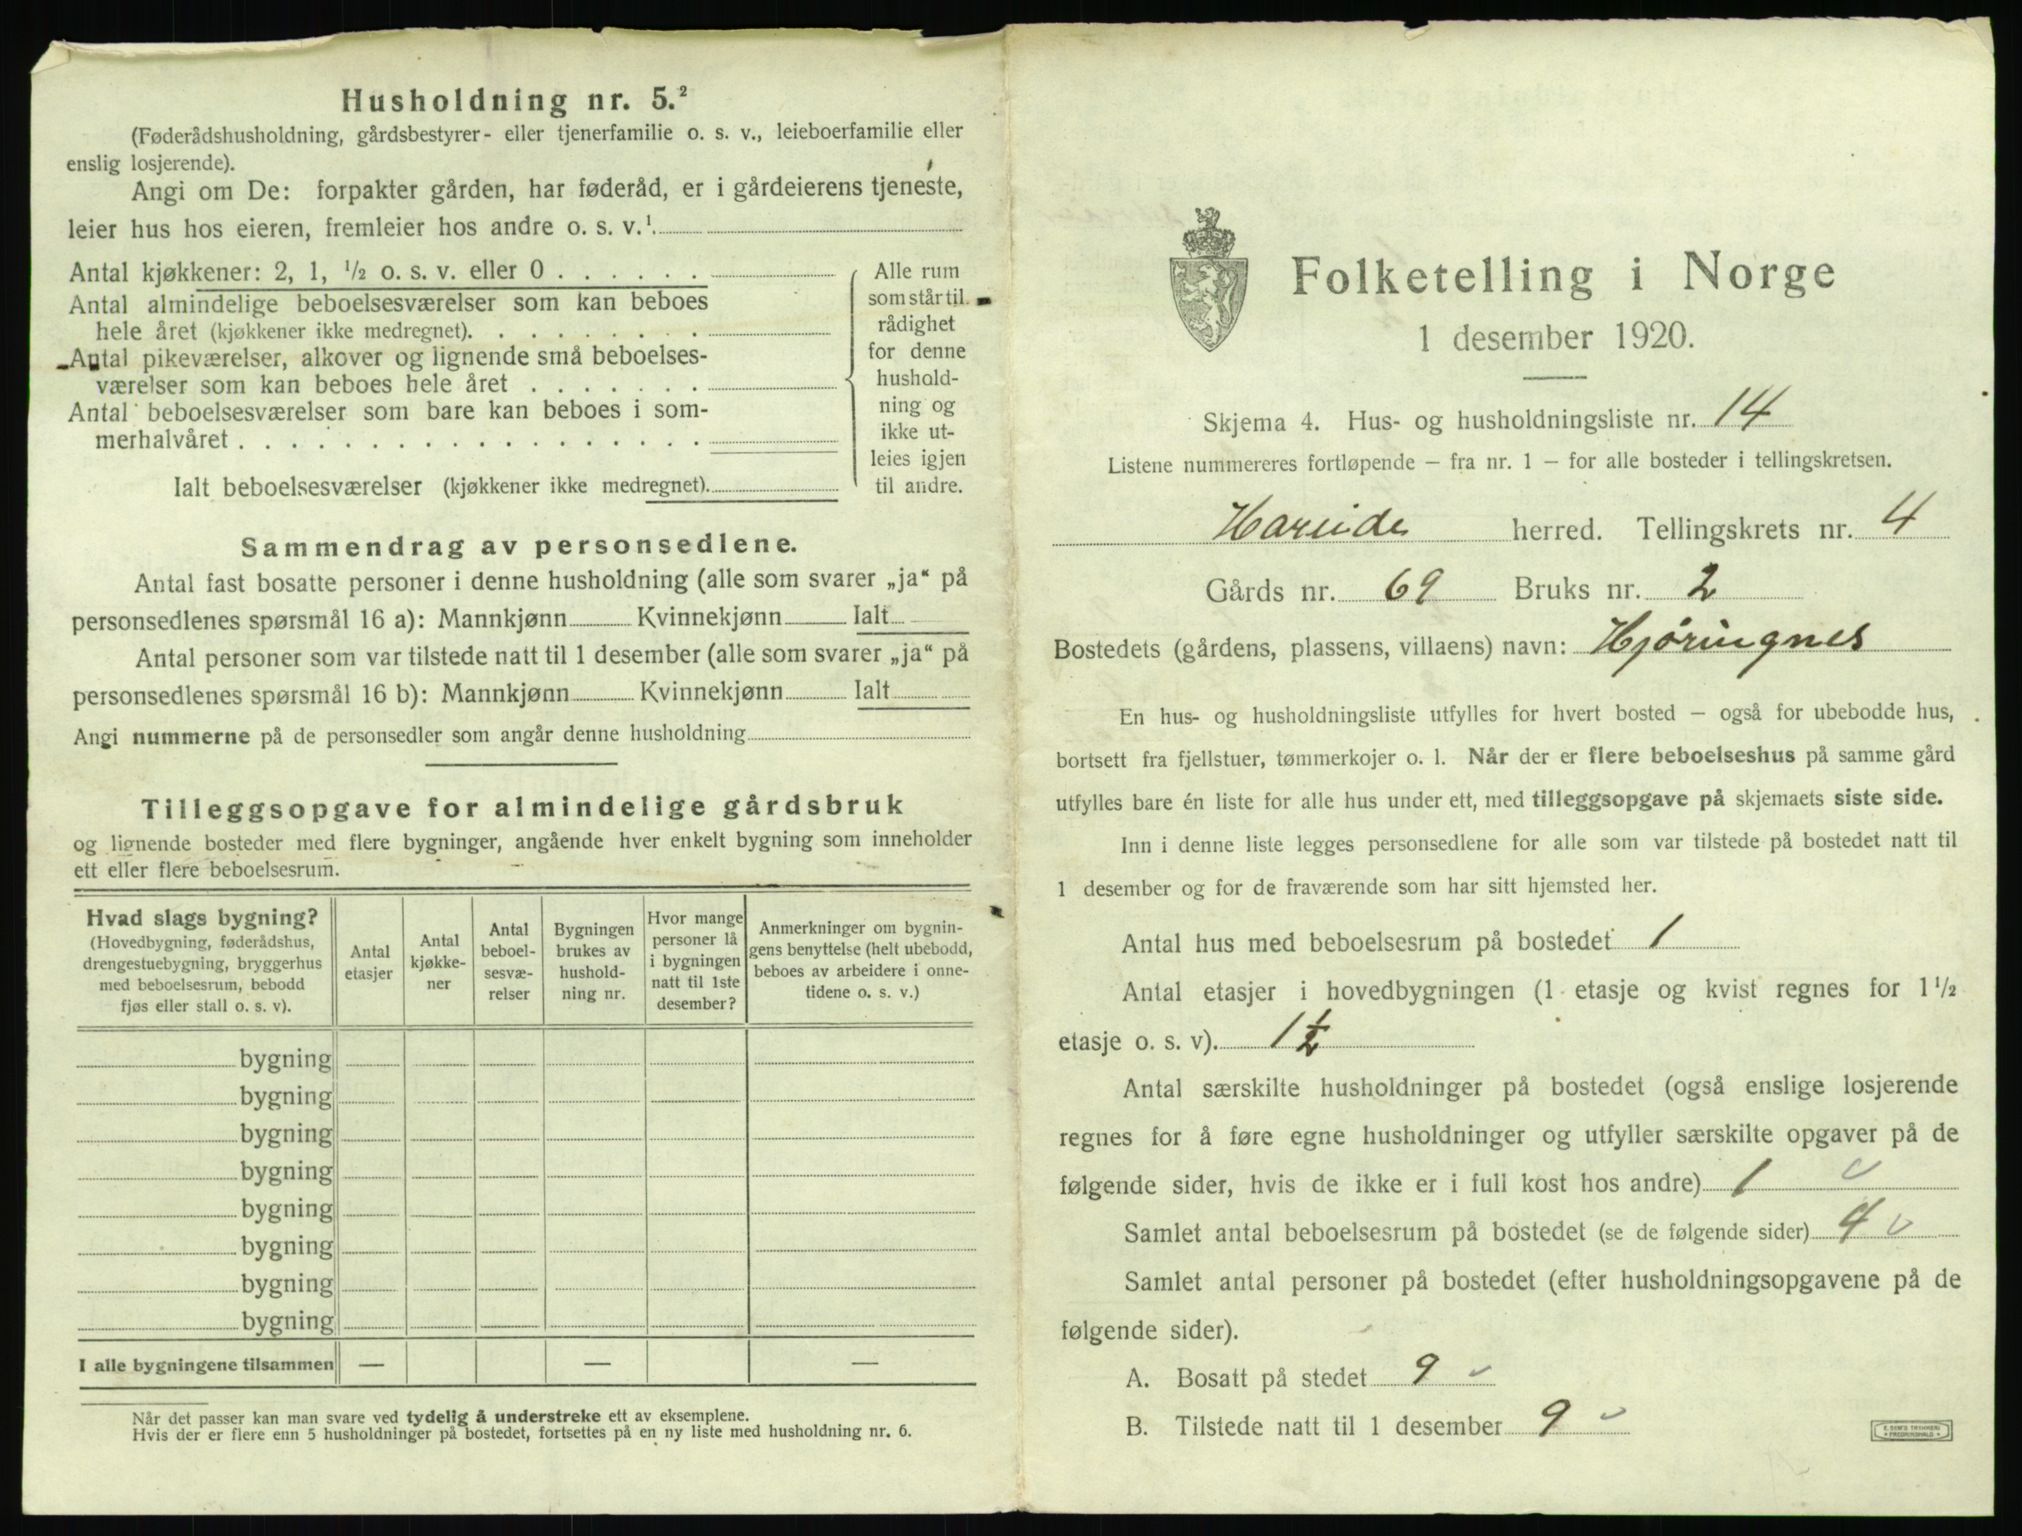 Husholdning nr. 5.²
(Føderådshusholdning, gårdsbestyrer- eller tjenerfamilie o. s. v., leieboerfamilie eller
enslig losjerende).
Angi om De: forpakter gården, har føderåd, er i gårdeierens tjeneste,
leier hus hos eieren, fremleier hos andre o. s. v.¹
Antal kjøkkener: 2, 1, ½ o. s. v. eller 0 . . . . . .
Antal almindelige beboelsesværelser som kan beboes
hele året (kjøkkener ikke medregnet). . . . . . . . .
Antal pikeværelser, alkover og lignende små beboelses-
værelser som kan beboes hele året . . . . . . .
Antal beboelsesværelser som bare kan beboes i som-
merhalvåret . . . . . . . . . . . . . . . . . .
Alle rum
som står til
rådighet
for denne
hushold-
ning og
ikke ut-
leies igjen
til andre.
Ialt beboelsesværelser (kjøkkener ikke medregnet).
Sammendrag av personsedlene.
Antal fast bosatte personer i denne husholdning (alle som svarer „ja“ på
personsedlenes spørsmål 16 a): Mannkjønn Kvinnekjønn Ialt
Antal personer som var tilstede natt til 1 desember (alle som svarer „ja“ på
personsedlenes spørsmål 16 b): Mannkjønn Kvinnekjønn Ialt
Angi nummerne på de personsedler som angår denne husholdning
Tilleggsopgave for almindelige gårdsbruk
og lignende bosteder med flere bygninger, angående hver enkelt bygning som inneholder
ett eller flere beboelsesrum.
Hvad slags bygning?
(Hovedbygning, føderådshus,
drengestuebygning, bryggerhus
med beboelsesrum, bebodd
fjøs eller stall o. s. v).
Antal
etasjer
Antal
kjøkke-
ner
Antal
beboel-
sesvæ-
relser
Bygningen
brukes av
hushold-
ning nr.
Hvor mange
personer lå
i bygningen
natt til 1ste
desember?
Anmerkninger om bygnin-
gens benyttelse (helt ubebodd,
beboes av arbeidere i onne-
tidene o. s. v.)
bygning
bygning
bygning
bygning
bygning
bygning
bygning
bygning
I alle bygningene tilsammen — — —
Når det passer kan man svare ved tydelig å understreke ett av eksemplene.
Hvis der er flere enn 5 husholdninger på bostedet, fortsettes på en ny liste med husholdning nr. 6.
Folketelling i Norge
1 desember 1920.
Skjema 4. Hus- og husholdningsliste nr. 14
Listene nummereres fortløpende – fra nr. 1 – for alle bosteder i tellingskretsen.
Hareide herred. Tellingskrets nr. 4
Gårds nr. 69 Bruks nr. 2
Bostedets (gårdens, plassens, villaens) navn: Hjøringnes
En hus- og husholdningsliste utfylles for hvert bosted – også for ubebodde hus,
bortsett fra fjellstuer, tømmerkojer o. l. Når der er flere beboelseshus på samme gård
utfylles bare én liste for alle hus under ett, med tilleggsopgave på skjemaets siste side.
Inn i denne liste legges personsedlene for alle som var tilstede på bostedet natt til
1 desember og for de fraværende som har sitt hjemsted her.
Antal hus med beboelsesrum på bostedet 1
Antal etasjer i hovedbygningen (1 etasje og kvist regnes for 1½
etasje o. s. v). 1½
Antal særskilte husholdninger på bostedet (også enslige losjerende
regnes for å føre egne husholdninger og utfyller særskilte opgaver på de
følgende sider, hvis de ikke er i full kost hos andre) 1
Samlet antal beboelsesrum på bostedet (se de følgende sider) 4
Samlet antal personer på bostedet (efter husholdningsopgavene på de
følgende sider).
A. Bosatt på stedet 9
B. Tilstede natt til 1 desember 9